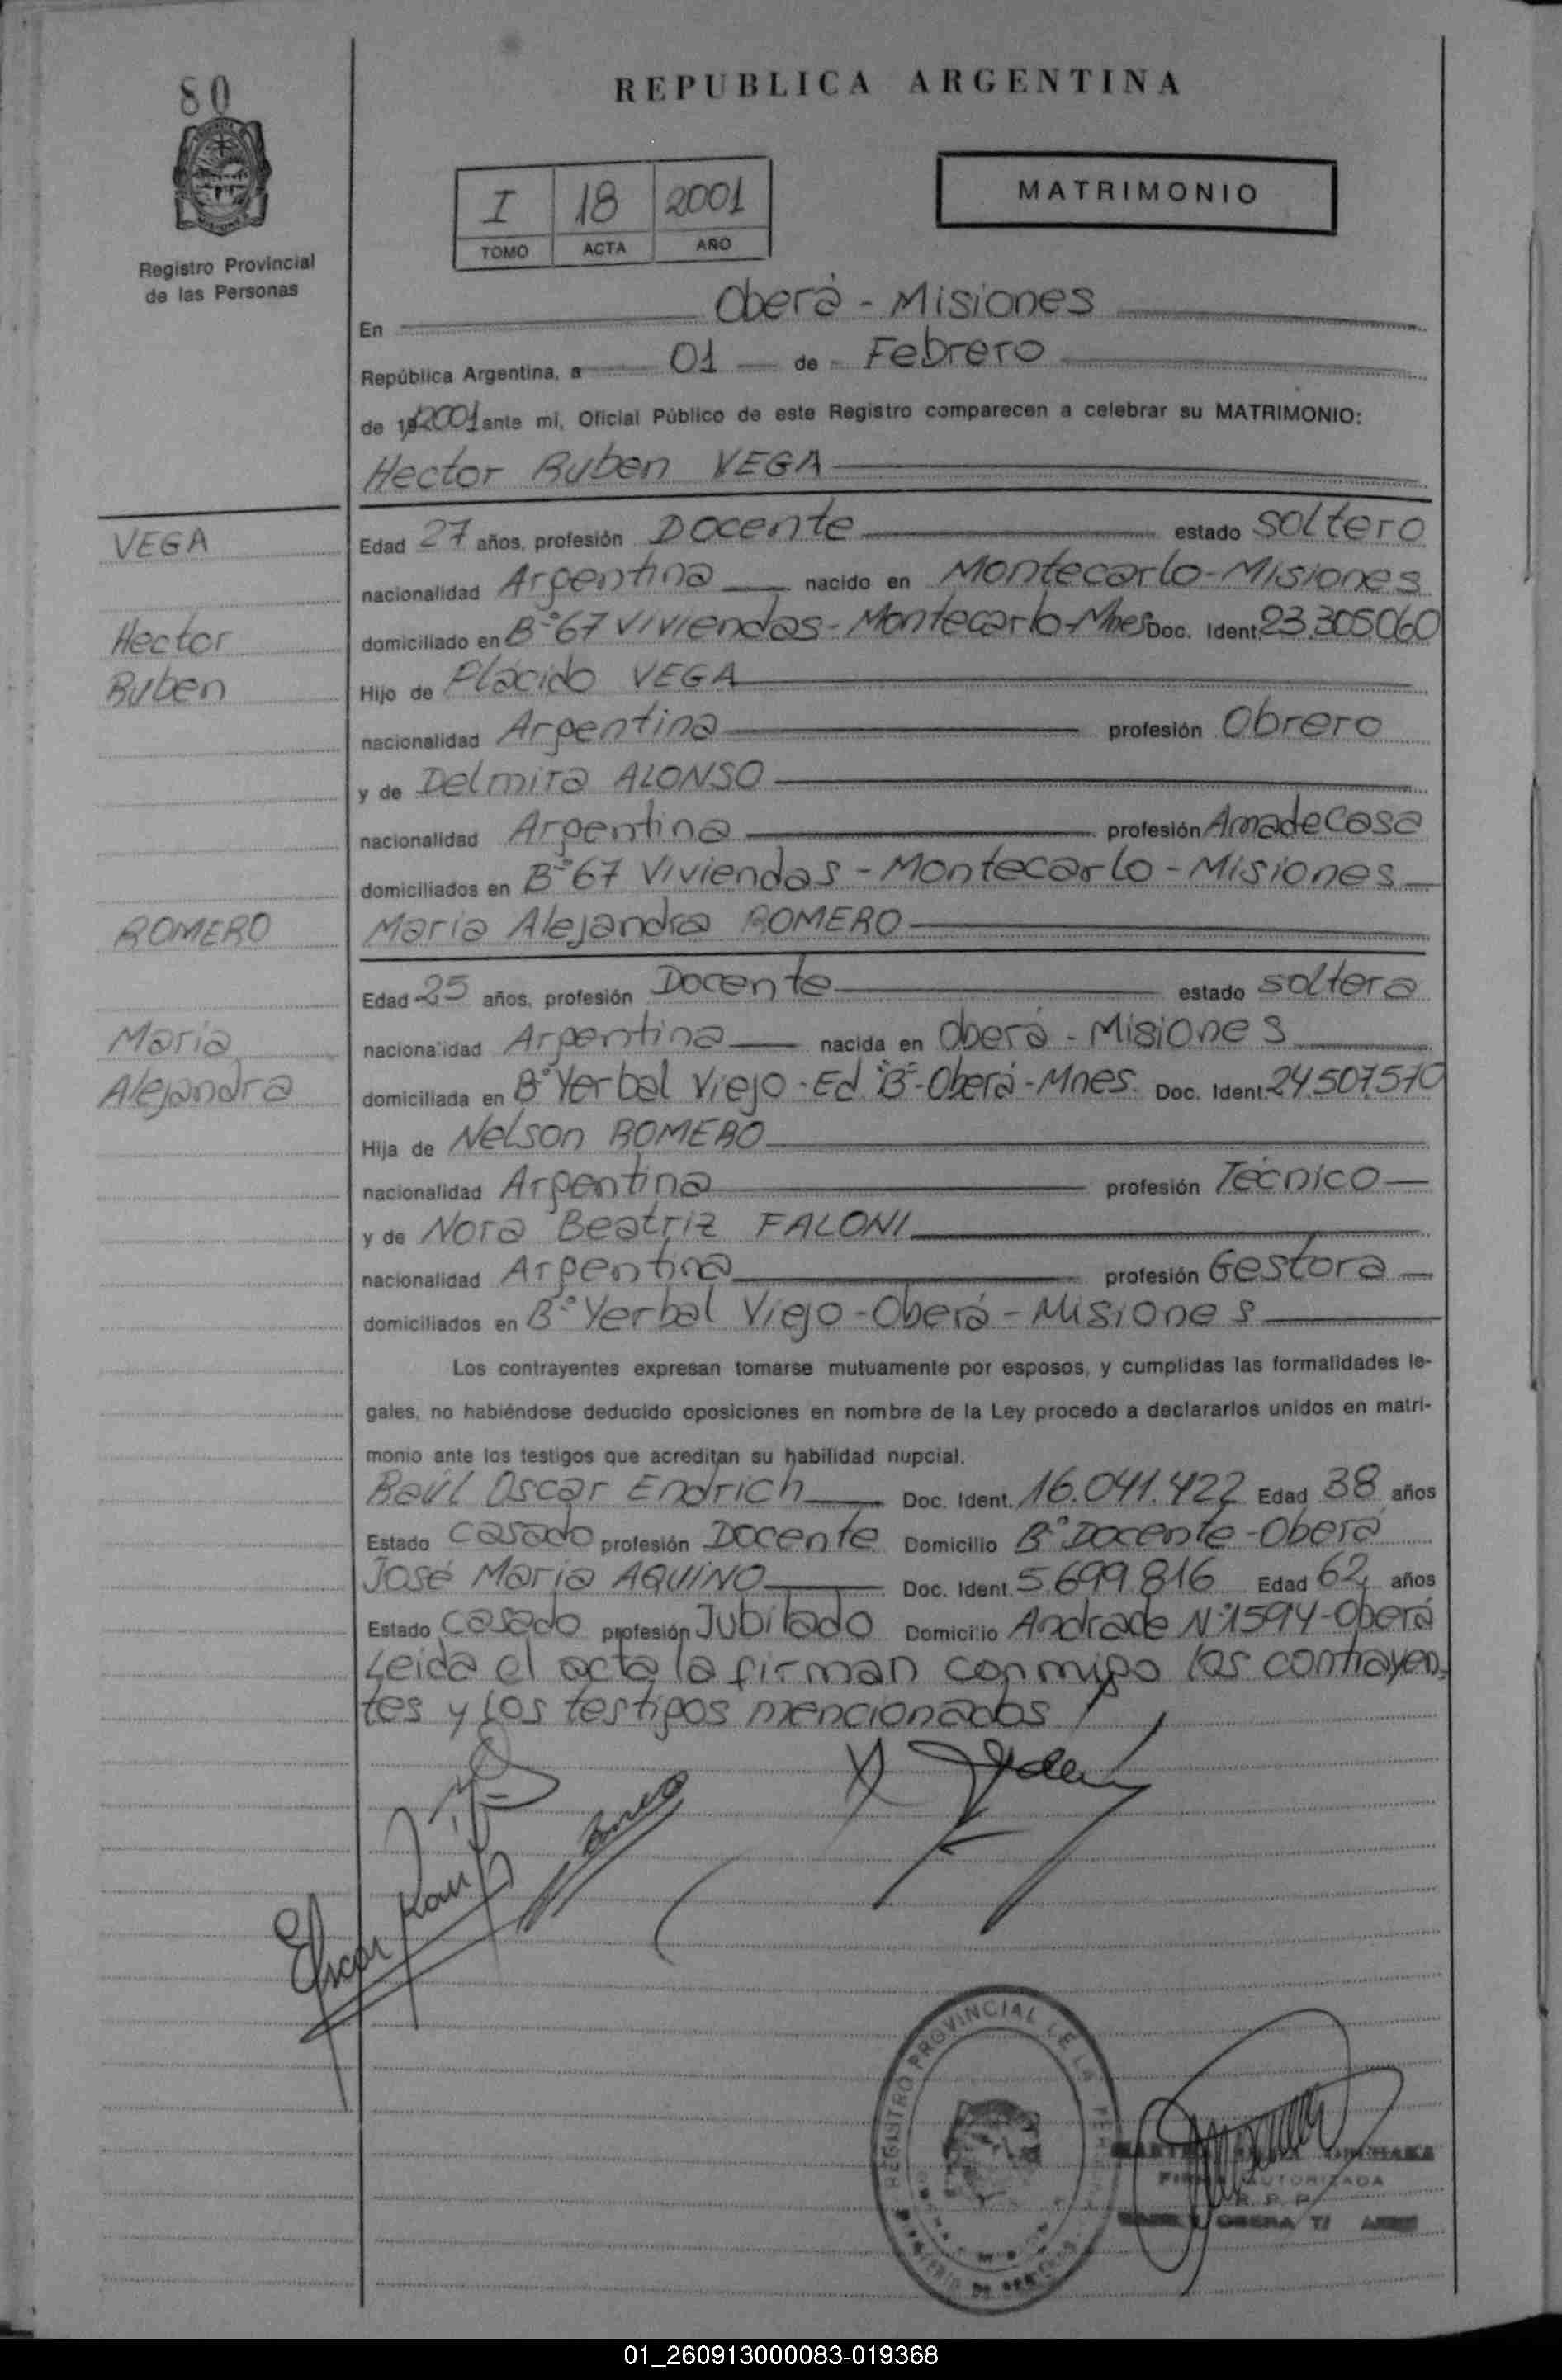 80
REPUBLICA ARGENTINA
I 18 2001
TOMO ACTA AÑO
MATRIMONIO
Registro Provincial
de las Personas
En Oberá - Misiones
República Argentina, a 01 de Febrero
de 19 2001 ante mi, Oficial Público de este Registro comparecen a celebrar su MATRIMONIO:
Hector Ruben VEGA
VEGA
Edad 27 años, profesión Docente estado soltero
nacionalidad Argentina nacido en Montecarlo-Misiones
Hector
domiciliado en B° 67 Viviendas - Montecarlo-Mnes Doc. Ident. 23.305.060
Ruben
Hijo de Plácido VEGA
nacionalidad Argentina profesión Obrero
y de Delmira ALONSO
nacionalidad Argentina profesión Ama de Casa
domiciliados en B° 67 Viviendas - Montecarlo - Misiones
ROMERO
María Alejandra ROMERO
Edad 25 años, profesión Docente estado soltera
María
nacionalidad Argentina nacida en Oberá - Misiones
Alejandra
domiciliada en B° Yerbal Viejo - Ed. "B" - Oberá - Mnes. Doc. Ident. 24.507.570
Hija de Nelson ROMERO
nacionalidad Argentina profesión Técnico
y de Nora Beatriz FALONI
nacionalidad Argentina profesión Gestora
domiciliados en B° Yerbal Viejo - Oberá - Misiones
Los contrayentes expresan tomarse mutuamente por esposos, y cumplidas las formalidades le-
gales, no habiéndose deducido oposiciones en nombre de la Ley procedo a declararlos unidos en matri-
monio ante los testigos que acreditan su habilidad nupcial.
Raúl Oscar Endrich Doc. Ident. 16.041.422 Edad 38 años
Estado casado profesión Docente Domicilio B° Docente - Oberá
José María AQUINO Doc. Ident. 5.699.816 Edad 62 años
Estado casado profesión Jubilado Domicilio Andrade N° 1594 - Oberá
Leida el acta la firman conmigo los contrayen-
tes y los testigos mencionados
REGISTRO PROVINCIAL DE LA
FIRMA AUTORIZADA
R. P. P.
OBERA
01_260913000083-019368